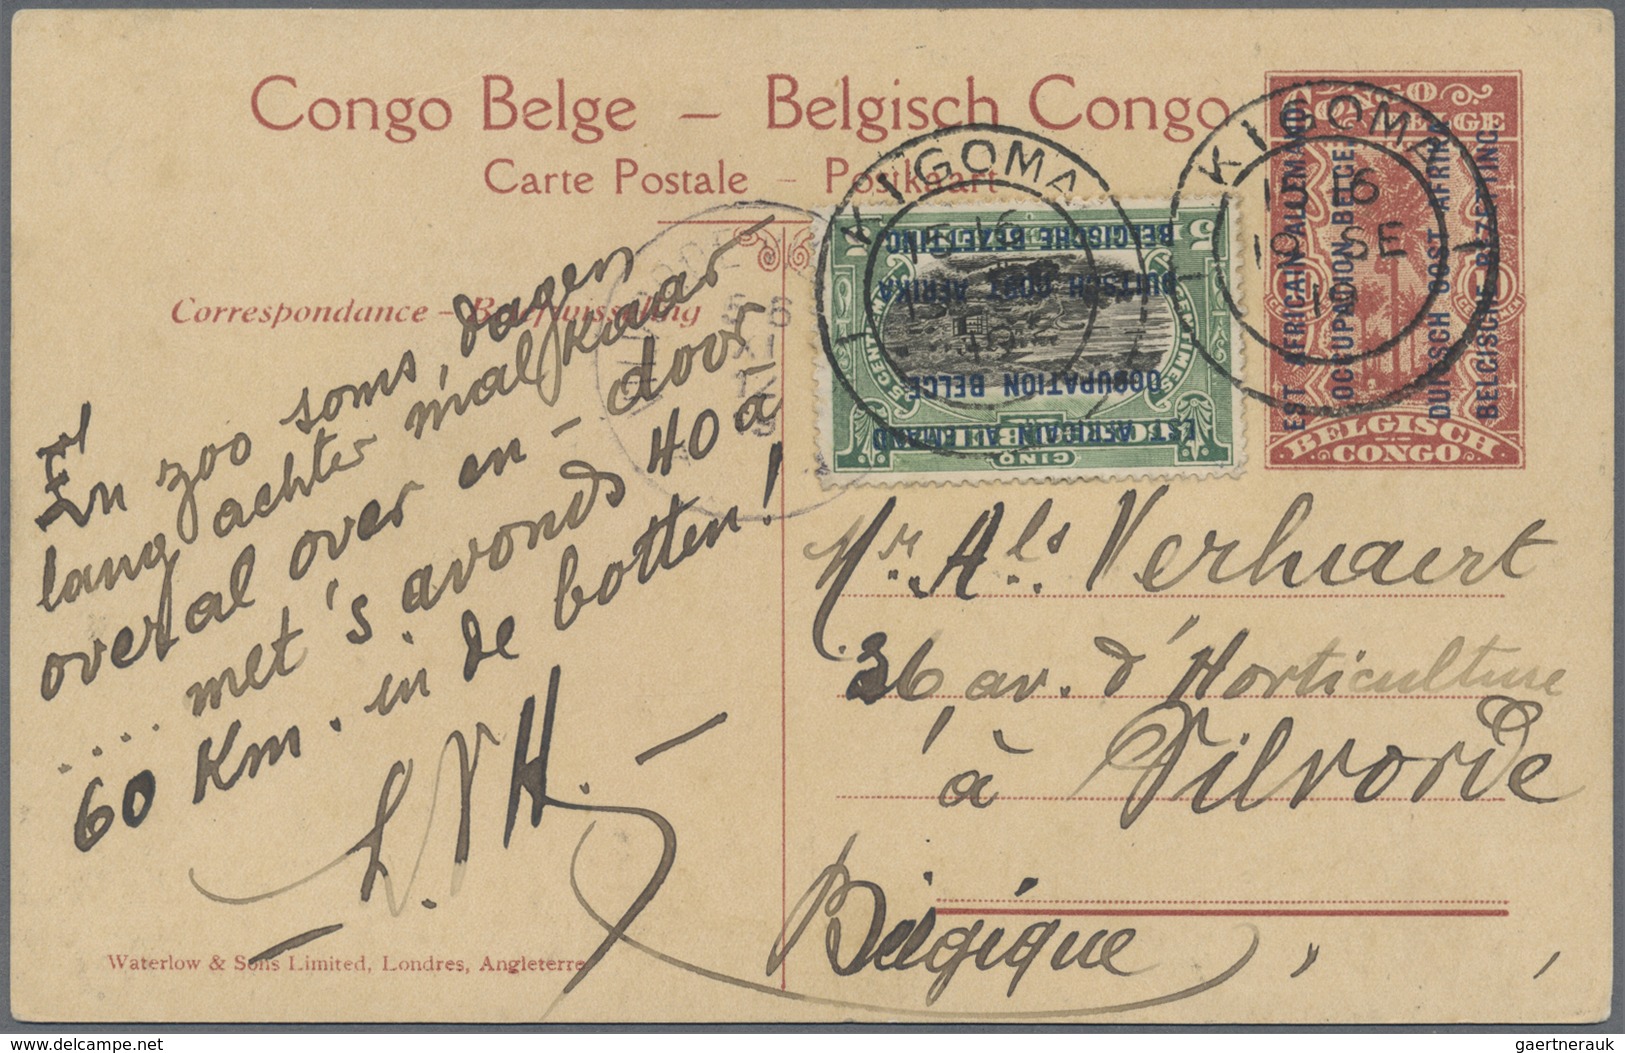 Congo Belge — Belgisch Congo
Carte Postale — Postkaart
Correspondance – Briefwisseling
En zoo soms, dagen
lang achter malkaar –
overal over en – door
.... met 's avonds 40 à
60 Km. in de botten!
– L.VH. –
Waterlow & Sons Limited, Londres, Angleterre
KIGOMA
15-16
KIGOMA
SE
1
5
5
CINQ
EST AFRICAIN ALLEMAND
OCCUPATION BELGE
DUITSCH OOST AFRIKA
BELGISCHE BEZETTING
CONGO
BELGE
EST AFRICAIN ALLEMAND
OCCUPATION BELGE.
DUITSCH OOST AFRIKA
BELGISCHE BEZETTING.
10
BELGISCH
CONGO
Mr. Als Verhaert
36 av. d'Horticulture
à Vilvorde
Belgique
gaertnerauk
delcampe.net